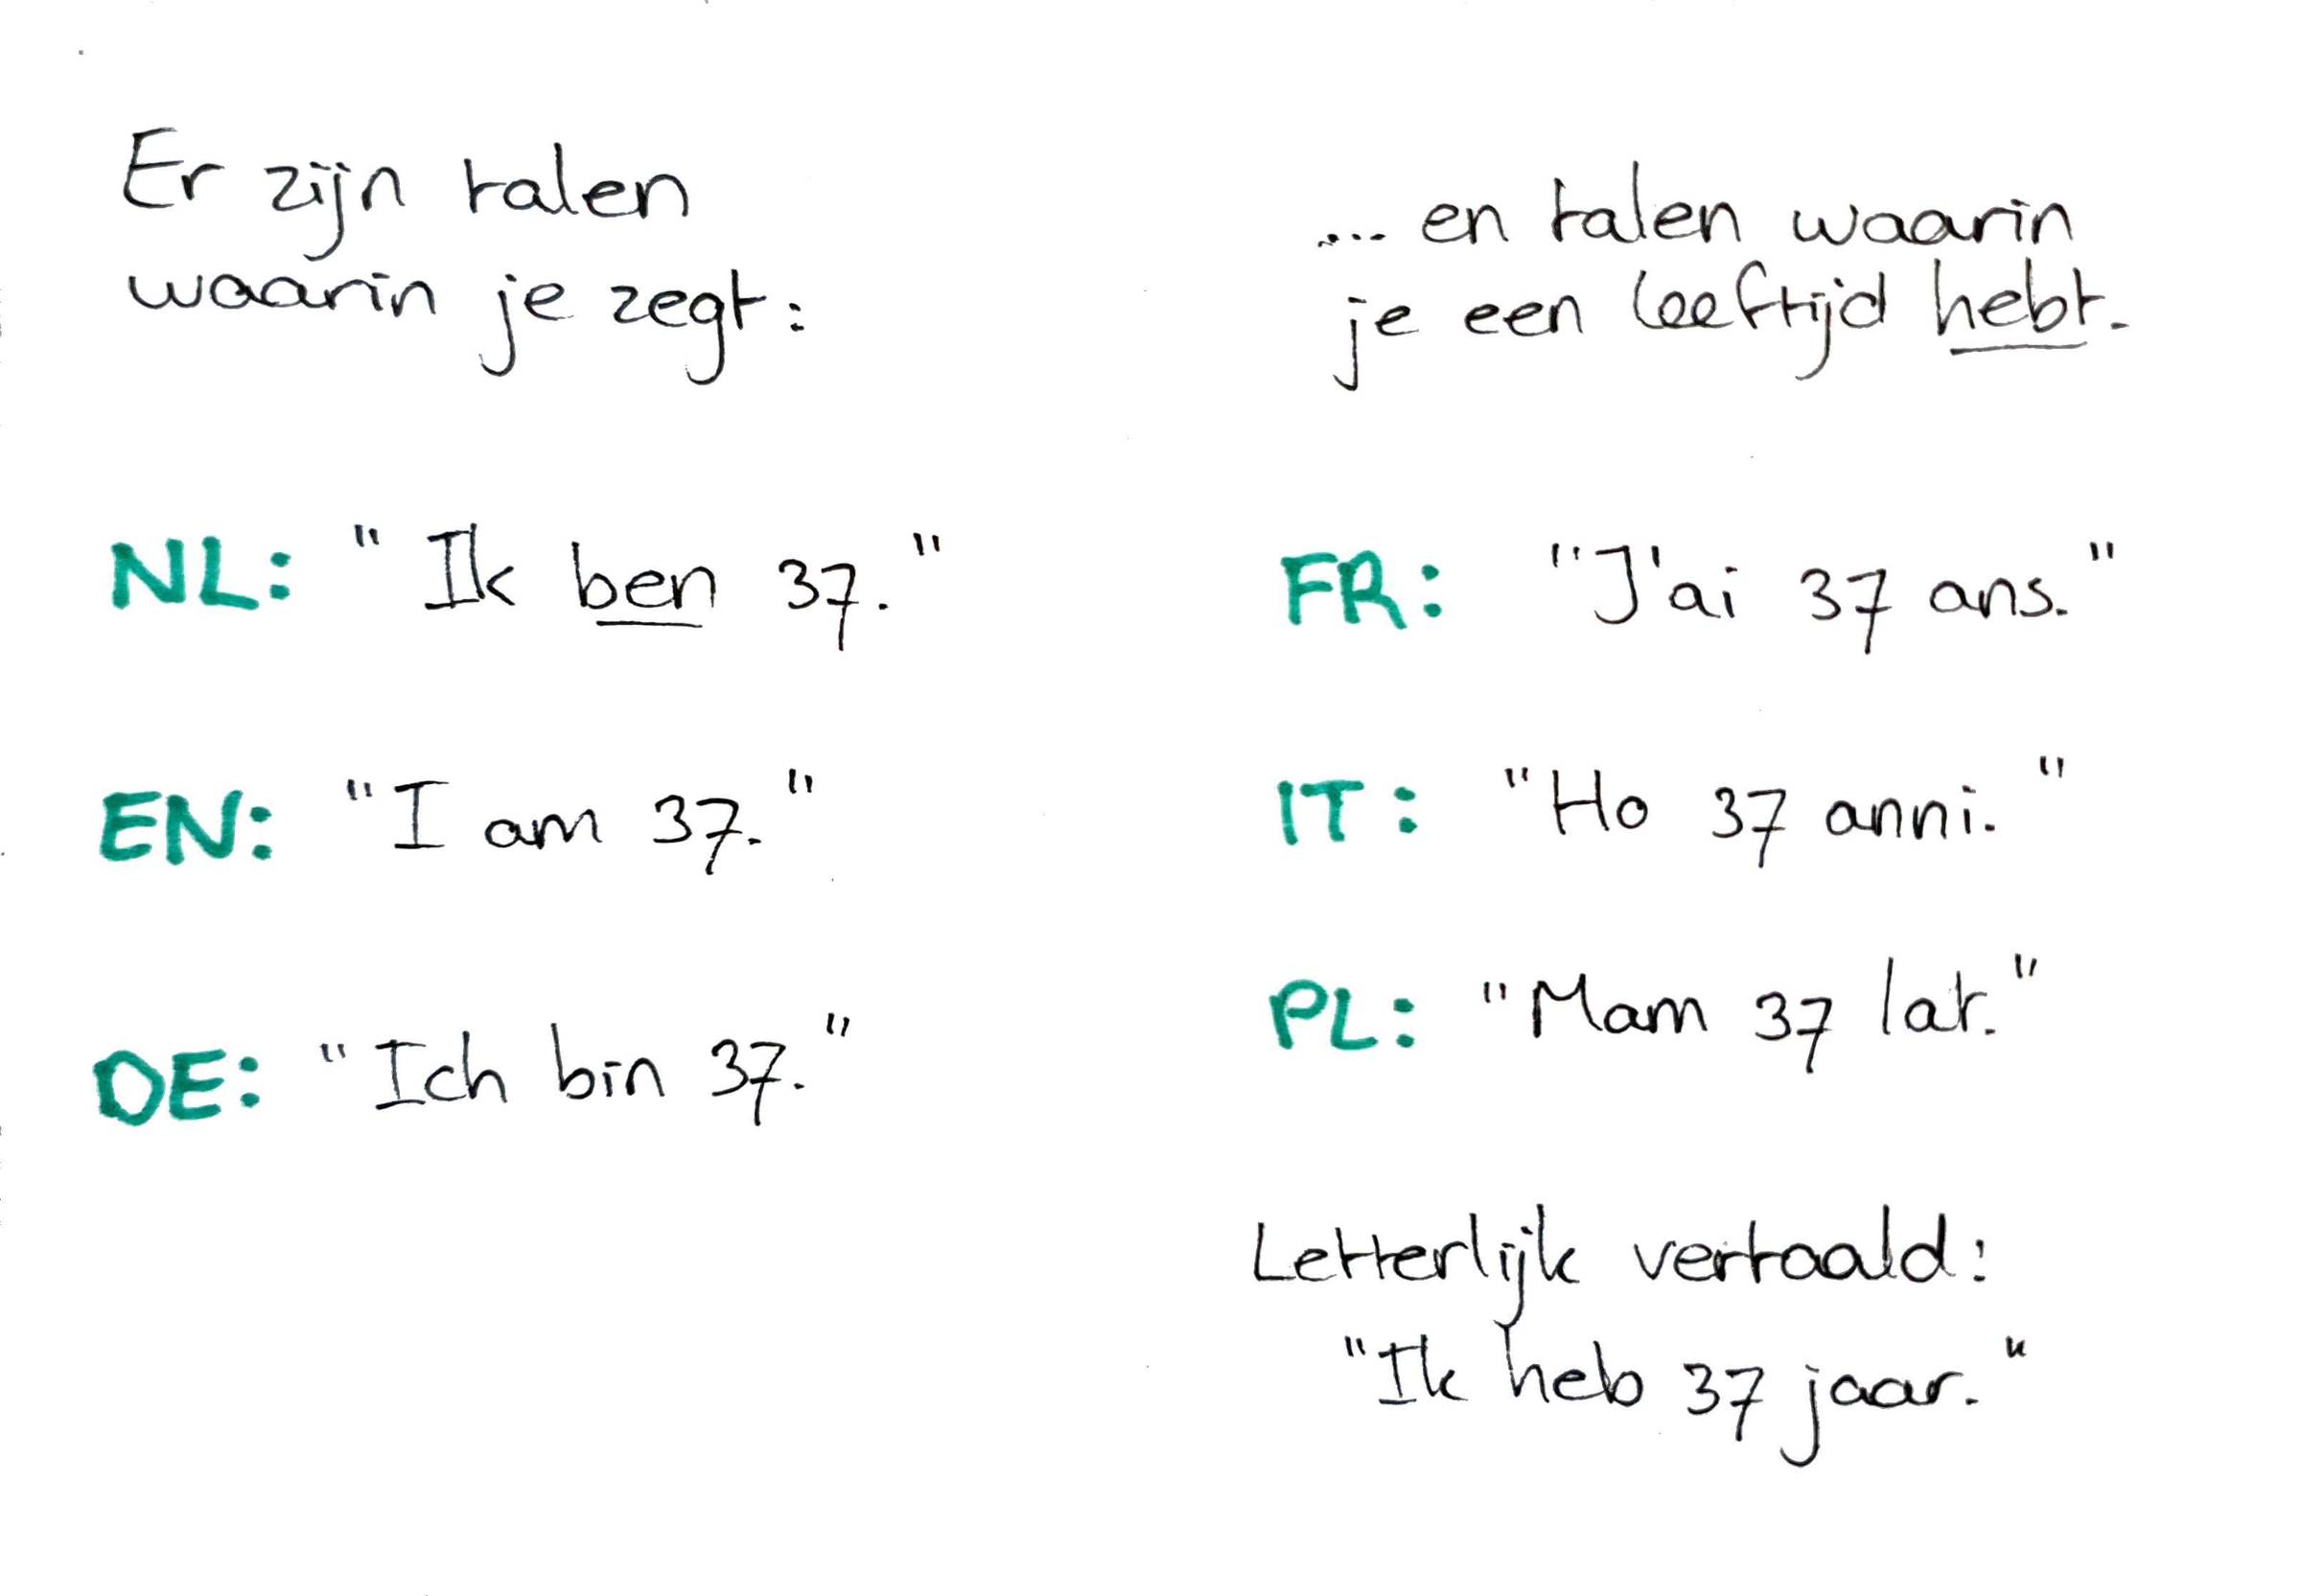 Er zijn talen
waarin je zegt:
NL: "Ik ben 37."
EN: "I am 37."
DE: "Ich bin 37."
... en talen waarin
je een leeftijd hebt.
FR: "J'ai 37 ans."
IT: "Ho 37 anni."
PL: "Mam 37 lat."
Letterlijk vertaald:
"Ik heb 37 jaar."